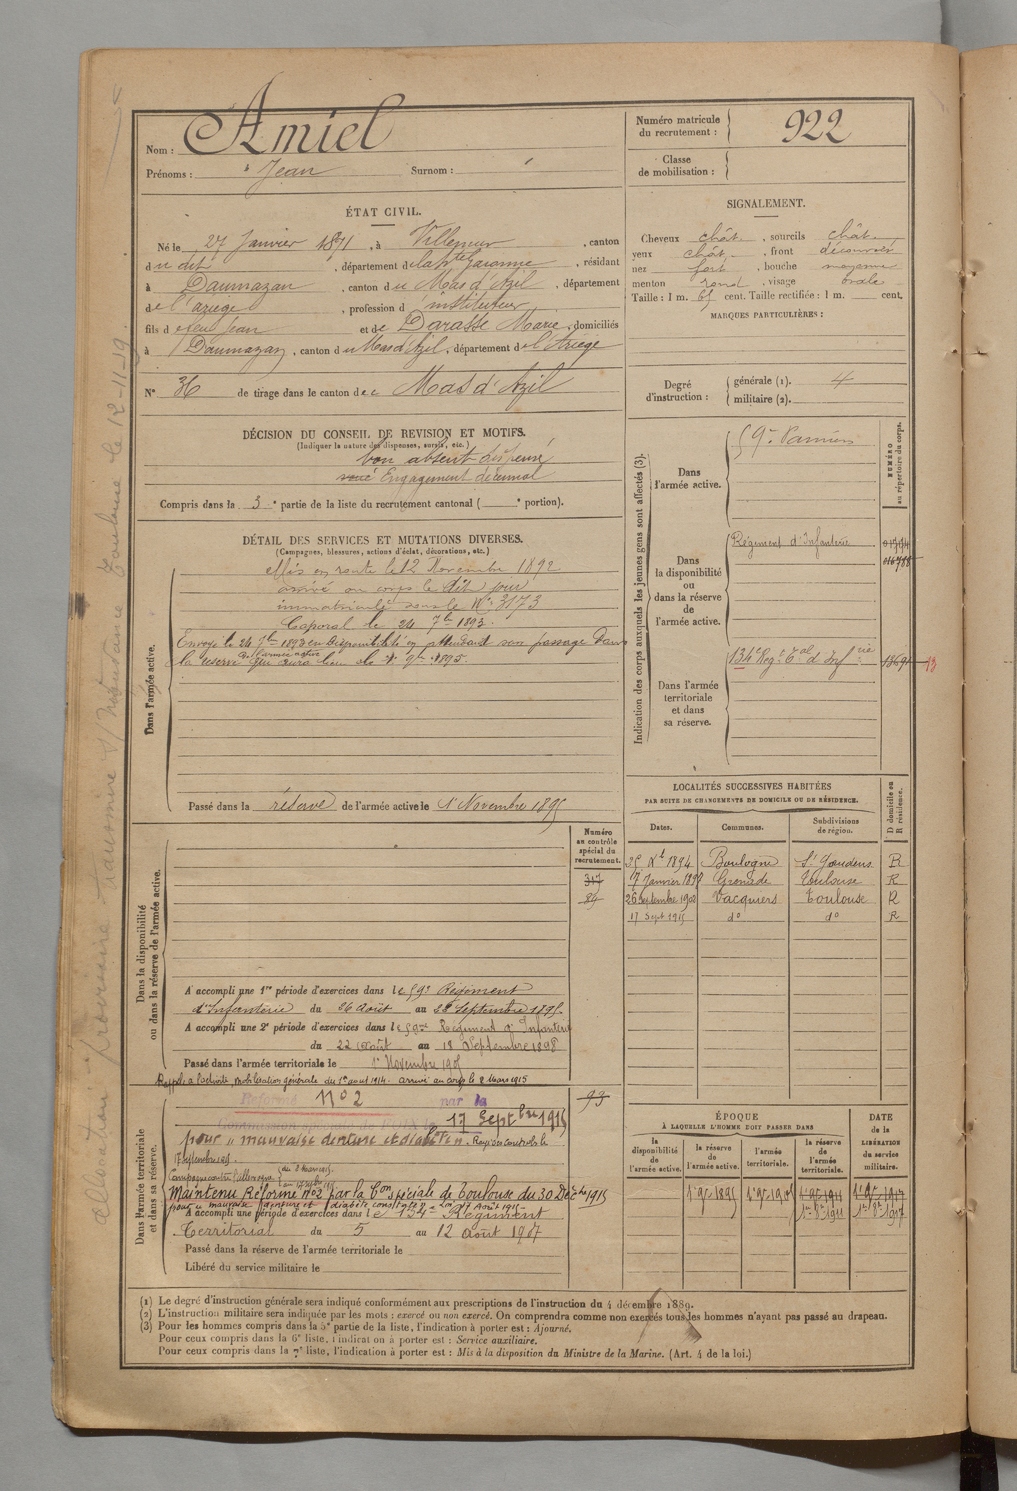 Nom : Amiel
Prénoms : Jean Surnom :
ÉTAT CIVIL.
Né le 27 Janvier 1871, à Villemur, canton
du dit, département de la Hte Garonne, résidant
à Daumazan, canton du Mas d'Azil, département
de l'ariège, profession d'instituteur
fils de feu Jean et de Darasse Marie, domiciliés
à Daumazan, canton du Mas d'Azil, département de l'Ariège
N° 36 de tirage dans le canton de Mas d'Azil
DÉCISION DU CONSEIL DE REVISION ET MOTIFS.
(Indiquer la nature des dispenses, sursis, etc.)
bon absent dispensé
Engagement décennal
Compris dans la 3e partie de la liste du recrutement cantonal ( e portion).
DÉTAIL DES SERVICES ET MUTATIONS DIVERSES.
(Campagnes, blessures, actions d'éclat, décorations, etc.)
Dans l'armée active.
mis en route le 12 Novembre 1892
arrivé au corps le dit jour
immatriculé sous le N° 3173
Caporal le 24 7bre 1893.
Envoyé le 24 7bre 1893 en disponibilité en attendant son passage dans
la réserve de l'armée active qui aura lieu le 1er 9bre 1895
Passé dans la réserve de l'armée active le 1er Novembre 1895
Dans la disponibilité
ou dans la réserve de l'armée active.
Numéro
au contrôle
spécial du
recrutement.
317
84
A accompli une 1re période d'exercices dans le 59e Régiment
d'Infanterie du 26 Août au 22 Septembre 1895
A accompli une 2e période d'exercices dans le 59me Régiment d'Infanterie
du 22 août au 18 Septembre 1898
Passé dans l'armée territoriale le 1er Novembre 1905
Rappelé à l'activité mobilisation générale du 1er août 1914. arrivé au corps le 2 Mars 1915
Dans l'armée territoriale
et dans sa réserve.
93
Réformé N° 2 par la
17 Septbre 1915
pour " mauvaise denture et diabète ". Rayé des contrôles le
17 septembre 1915.
Maintenu Réformé N°2 par la Con spéciale de Toulouse du 30 Décbre 1915
pour " mauvaise denture et diabète
A accompli une période d'exercices dans le 134e Régiment
Territorial du 5 au 12 août 1907
Passé dans la réserve de l'armée territoriale le
Libéré du service militaire le
Numéro matricule
du recrutement : 922
Classe
de mobilisation :
SIGNALEMENT.
Cheveux chât., sourcils chât.
yeux chât., front découvert
nez fort, bouche moyenne
menton rond, visage ovale
Taille : 1 m. 65 cent. Taille rectifiée : 1 m. cent.
MARQUES PARTICULIÈRES :
Degré
d'instruction :
générale (1). 4
militaire (2).
Indication des corps auxquels les jeunes gens sont affectés (3).
NUMÉRO
au répertoire du corps.
Dans
l'armée active.
59e Pamiers
Dans
la disponibilité
ou
dans la réserve
de
l'armée active.
Régiment d'Infanterie
Dans l'armée
territoriale
et dans
sa réserve.
134e Regt Tal d'Infrie
13
LOCALITÉS SUCCESSIVES HABITÉES
PAR SUITE DE CHANGEMENTS DE DOMICILE OU DE RÉSIDENCE.
Dates. Communes. Subdivisions de région. D domicile ou R résidence.
1894 Boulogne St Gaudens R
7 Janvier Grenade Toulouse R
26 Septembre 1902 Vacquiers Toulouse R
17 Sept 1915 do do R
ÉPOQUE
À LAQUELLE L'HOMME DOIT PASSER DANS
DATE
de la
LIBÉRATION
du service
militaire.
la disponibilité de l'armée active.
la réserve de l'armée active.
l'armée territoriale.
la réserve de l'armée territoriale.
1er 9bre 1895 1er 9bre 1905 1er 9bre 1911 1er 9bre 1917
1er 8bre 1911 1er 8bre 1917
(1) Le degré d'instruction générale sera indiqué conformément aux prescriptions de l'instruction du 4 décembre 1889.
(2) L'instruction militaire sera indiquée par les mots : exercé ou non exercé. On comprendra comme non exercés tous les hommes n'ayant pas passé au drapeau.
(3) Pour les hommes compris dans la 5e partie de la liste, l'indication à porter est : Ajourné.
Pour ceux compris dans la 6e liste, l'indication à porter est : Service auxiliaire.
Pour ceux compris dans la 7e liste, l'indication à porter est : Mis à la disposition du Ministre de la Marine. (Art. 4 de la loi.)
allocation provisoire transmise s/Intendance Toulouse le 12-11-19.